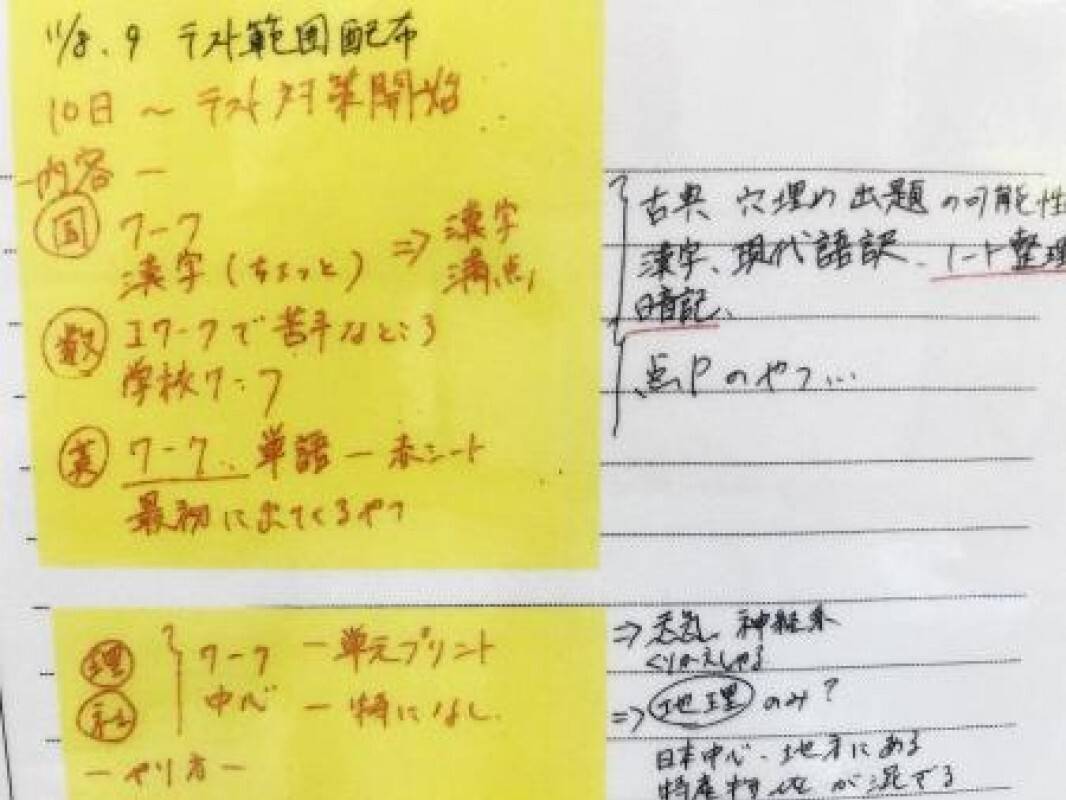 11/8、9 テスト範囲配布
10日 ～ テスト対策開始
ー内容ー
国 ワーク
漢字(ちょっと) ⇒ 漢字
満点
古典 穴埋め 出題 の可能性
漢字、現代語訳、ノート整理
暗記、
数 ワークで苦手なところ
学校ワーク
点Pのやつ…
英 ワーク、単語ー赤シート
最初に出てくるやつ
理 ワーク ー単元プリント
社 中心 ー特になし
⇒ 神経系
くりかえしやる
⇒ 地理 のみ?
日本中心・地方にある
特産物 が混でる
ーやり方ー